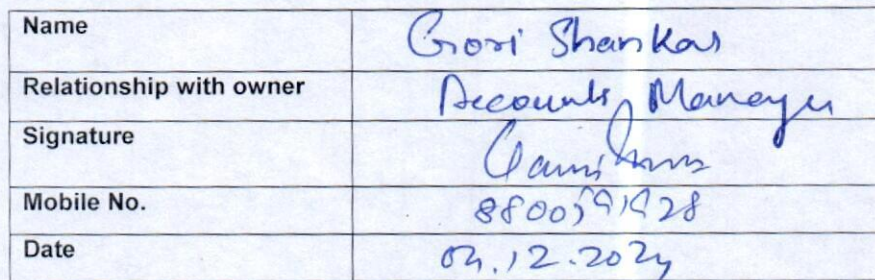 Name Gori Shankar
Relationship with owner Accounts Manager
Signature
Mobile No. 8800591928
Date 04.12.2024